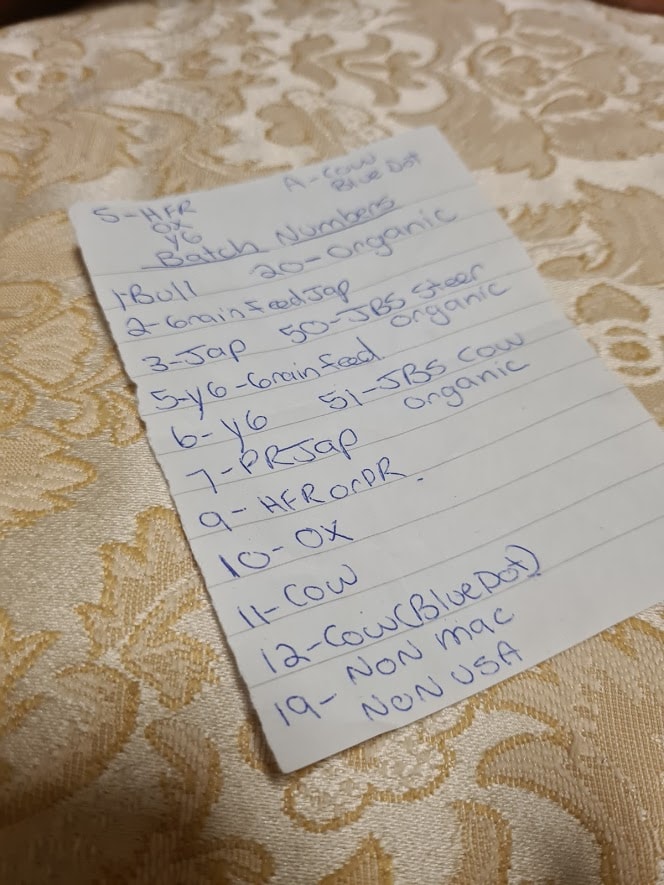 S-HFR
OX
Y6
A-COW
Blue Dot
Batch Numbers
1-Bull
20-Organic
2-GrainfeedJap
3-Jap
50-JBS Steer
organic
5-Y6-Grainfeed
6-Y6
51-JBS COW
organic
7-PRJap
9-HFRorPR.
10-OX
11-COW
12-Cow(BlueDot)
19-NON mac
NON USA